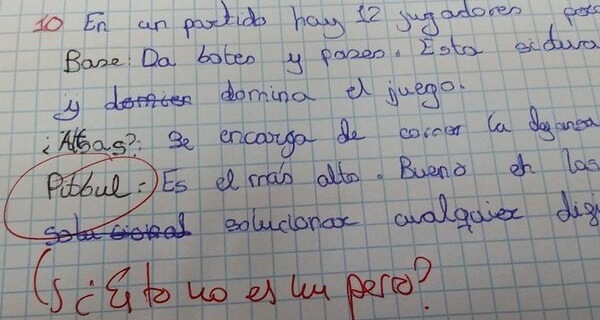 10 En un partido hay 12 jugadores
Base: Da botes y pases. Esta
y domina el juego.
¿Alsas?: Se encarga de correr la
Pitbul: Es el más alto. Bueno en las
solucionar cualquier
¿Esto no es un perro?